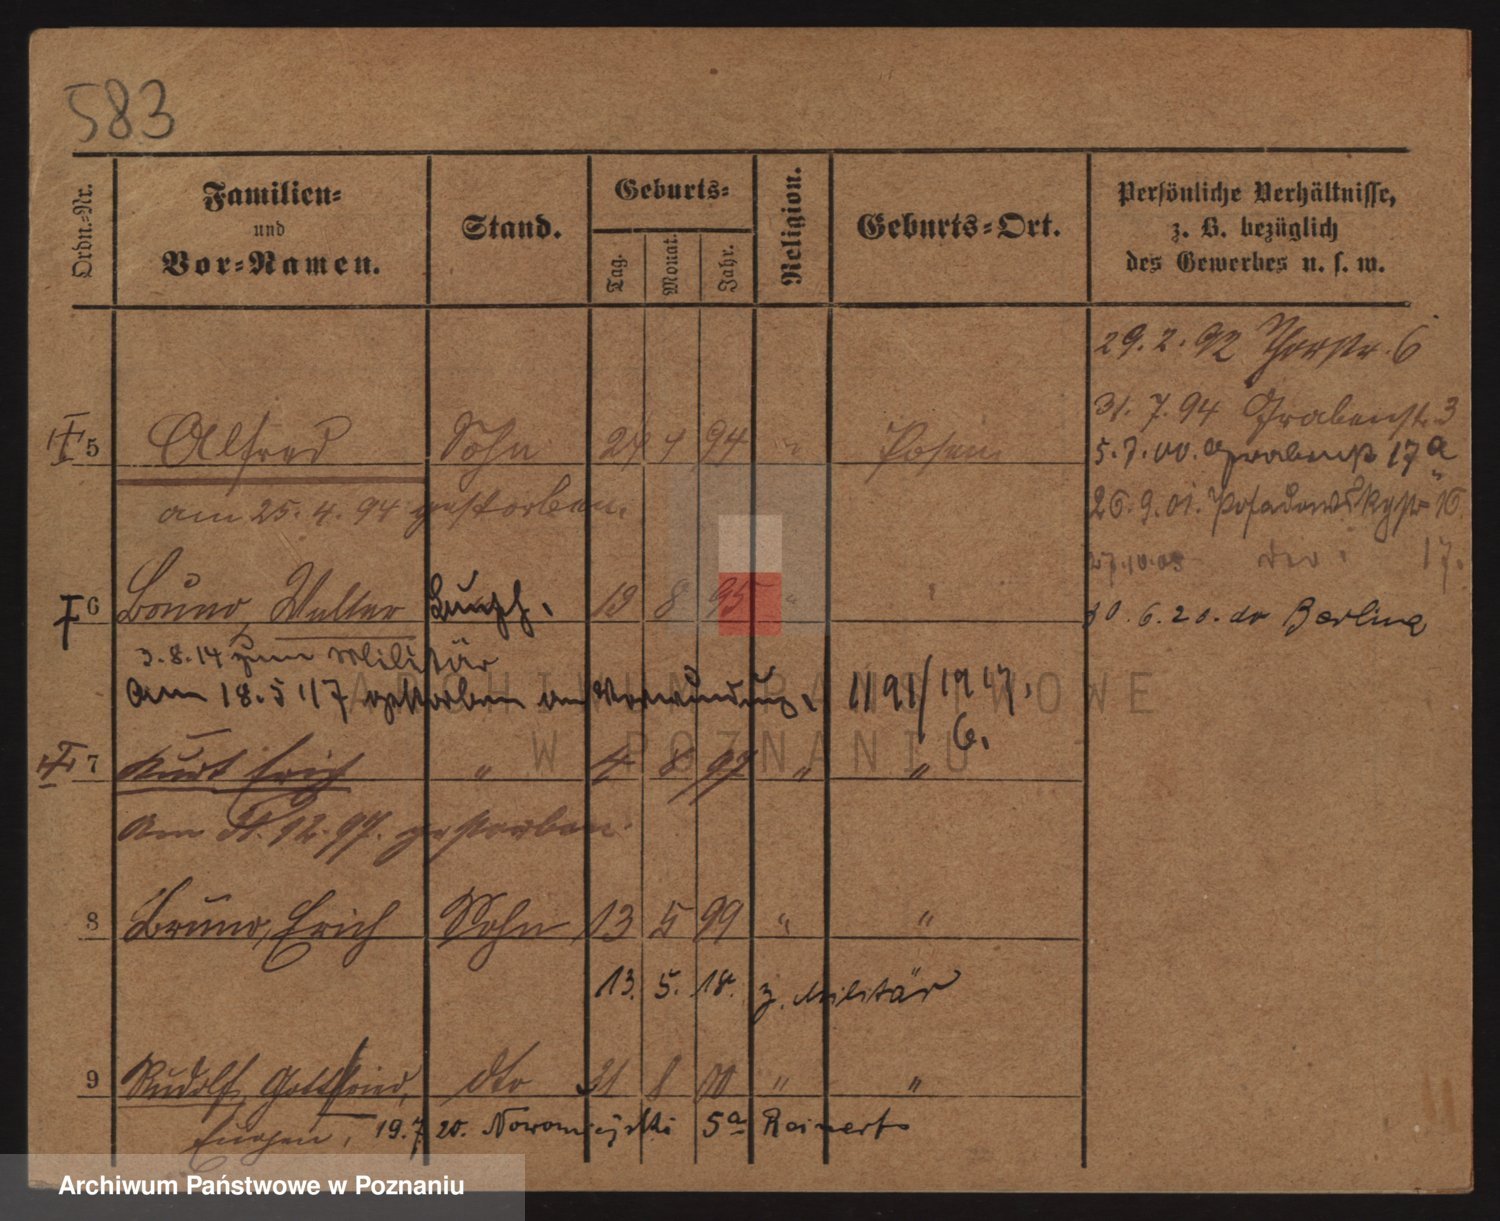 583
Ordn.=Nr.
Familien=
und
Vor=Namen.
Stand.
Geburts=
Tag.
Monat.
Jahr.
Religion.
Geburts=Ort.
Persönliche Verhältnisse,
z. B. bezüglich
des Gewerbes u. s. w.
29.2.92 Thorstr. 6
31.7.94 Grabenstr. 3
5 Alfred Sohn 24 4 94 " Posen
5.7.00. Grabenstr 17a
am 25.4.94 gestorben.
26.9.01. Posadowskystr 16
27.10.03 dto. 17.
6 Bruno, Walter 19 8 95 "
30.6.20. do Berlin
3.8.14 zum Militär
Am 18.5.17 gestorben an Verwundung. 1191/1917.
6.
7 Kurt Erich " 4 8 97 " "
Am 31.12.97. gestorben.
8 Bruno, Erich Sohn 13 5 99 " "
13. 5. 18. z. Militär
9 Rudolf Gottfried, dto 31 8 00 " "
Eugen, 19.7.20. Nowomiejski 5a Reinert
ARCHIWUM PAŃSTWOWE
W POZNANIU
Archiwum Państwowe w Poznaniu